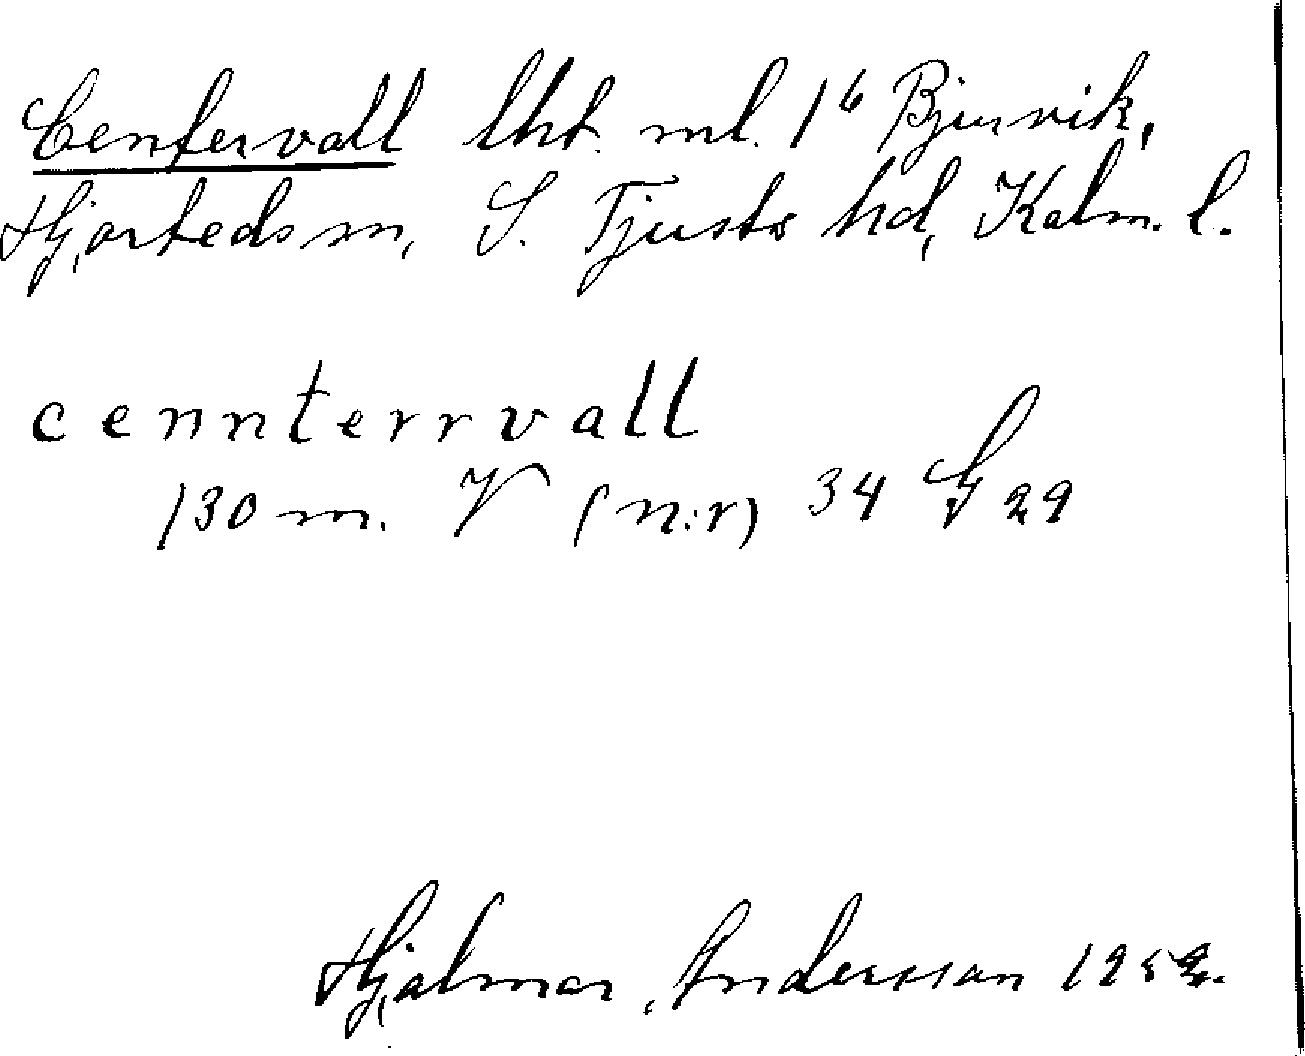 Centervall lht. ml. 1⁶ Bjurvik,
Hjorteds sn, S. Tjusts hd, Kalm. l.
cennterrvall
130 m. V (n:r) 34 G 29
Hjalmar Andersson